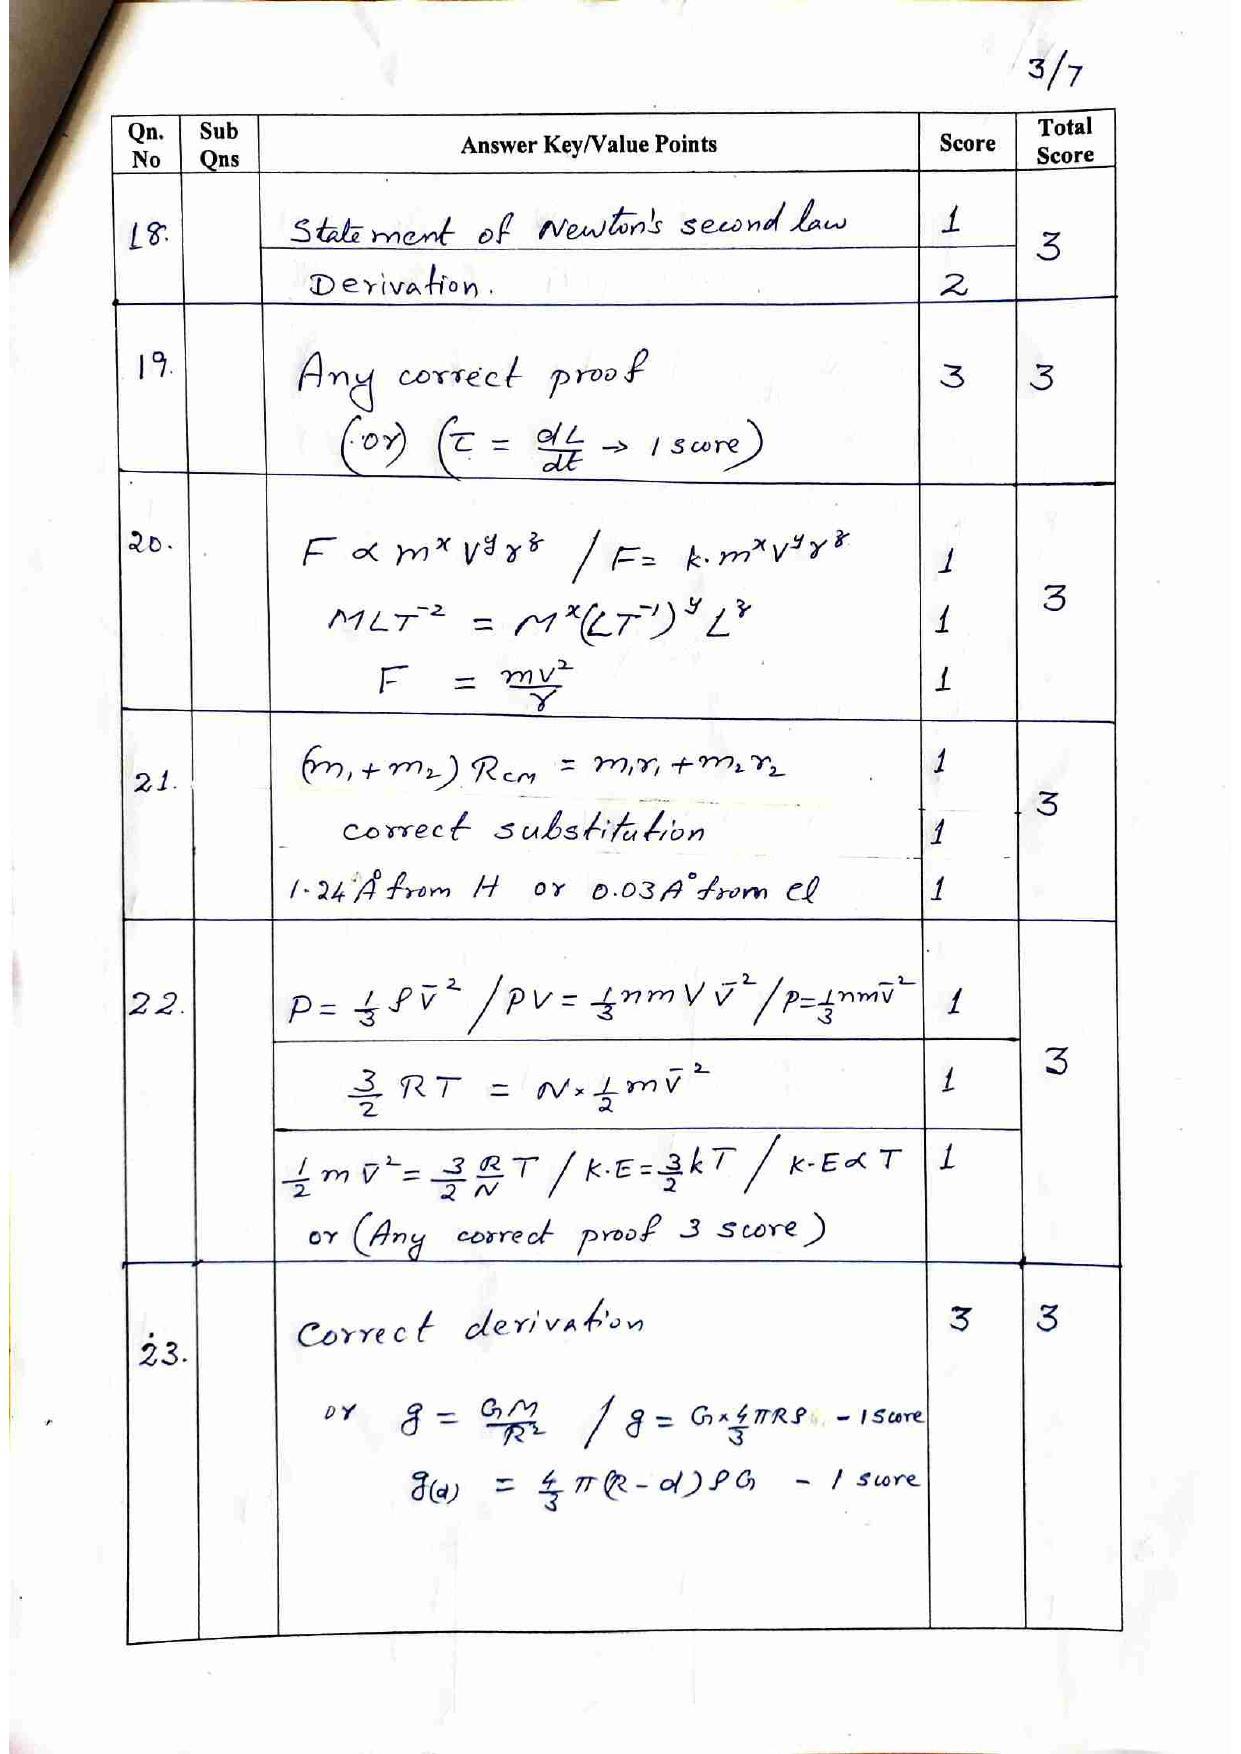 3/7
Qn. No | Sub Qns | Answer Key/Value Points | Score | Total Score
18. | Statement of Newton's second law | 1 | 3
Derivation. | 2
19. | Any correct proof | 3 | 3
(or) (τ = dL/dt → 1 score)
20. | F ∝ m^x v^y r^z / F = k. m^x v^y r^z | 1 | 3
MLT^-2 = M^x (LT^-1)^y L^z | 1
F = mv²/r | 1
21. | (m₁ + m₂) R_CM = m₁r₁ + m₂r₂ | 1 | 3
correct substitution | 1
1.24 A° from H or 0.03 A° from cl | 1
22. | P = 1/3 ρ v̄² / PV = 1/3 nm V v̄² / P = 1/3 nm v̄² | 1 | 3
3/2 RT = N × 1/2 m v̄² | 1
1/2 m v̄² = 3/2 R/N T / K.E = 3/2 kT / K.E ∝ T | 1
or (Any correct proof 3 score)
23. | Correct derivation | 3 | 3
or g = GM/R² / g = G × 4/3 πRρ - 1 score
g(d) = 4/3 π (R - d) ρ G - 1 score